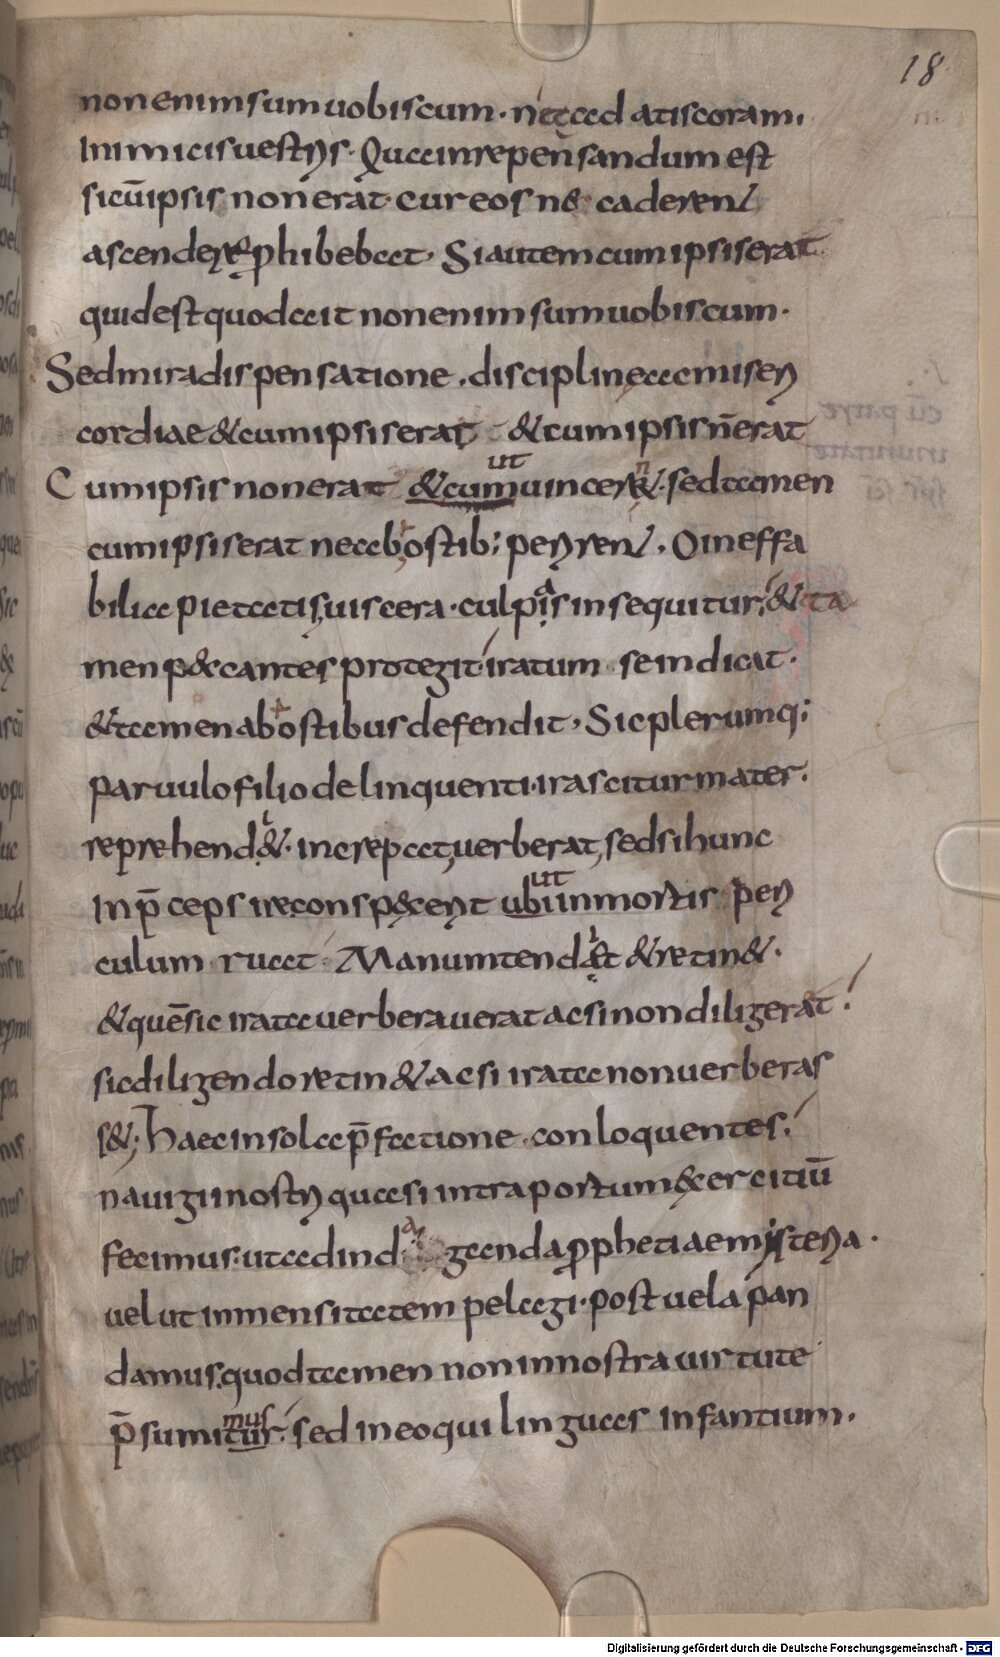 18
non enim sum uobiscum. ne cadatis coram.
Inimicis uestris. Qua in re pensandum est
si cū ipsis non erat. cur eos ne caderent
ascendere ꝓhibebat. Si autem cum ipsis erat
quid est quod ait non enim sum uobiscum.
Sed mira dispensatione. disciplinę ac miseri
cordiae & cum ipsis erat & cum ipsis n̄ erat
Cum ipsis non erat ut & cum uincerent. sed tamen
cum ipsis erat ne ab hostib; perirent. O ineffa
bilia pietatis uiscera. culpas insequitur. & ta
men peccantes protegit. iratum se indicat.
& tamen ab hostibus defendit. Sic plerumq;
paruulo filio delinquenti. irascitur mater.
reprehendit. increpat, uerberat, sed si hunc
In p̄ceps ire conspexerit ubi ut in mortis peri
culum ruat. Manum tendit & retin&.
& quē sic irata uerberauerat ac si non diligerat.
sic diligendo retin& ac si irata non uerberas
s&. Haec in sola p̄fatione. conloquentes.
nauigii nostri quasi intra portum exercitiū
fecimus. ut ad indaganda ꝓphetiae mysteria.
uelut inmensitatem pelagi. post uela pan
damus. quod tamen non in nostra uirtute
p̄sumitur mus. sed in eo qui linguas infantium.
Digitalisierung gefördert durch die Deutsche Forschungsgemeinschaft - DFG